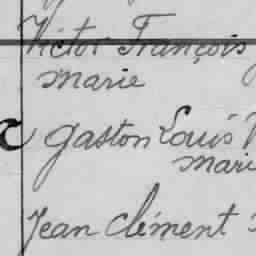 Victor François
Marie
Gaston Louis
Mari
Jean Clément